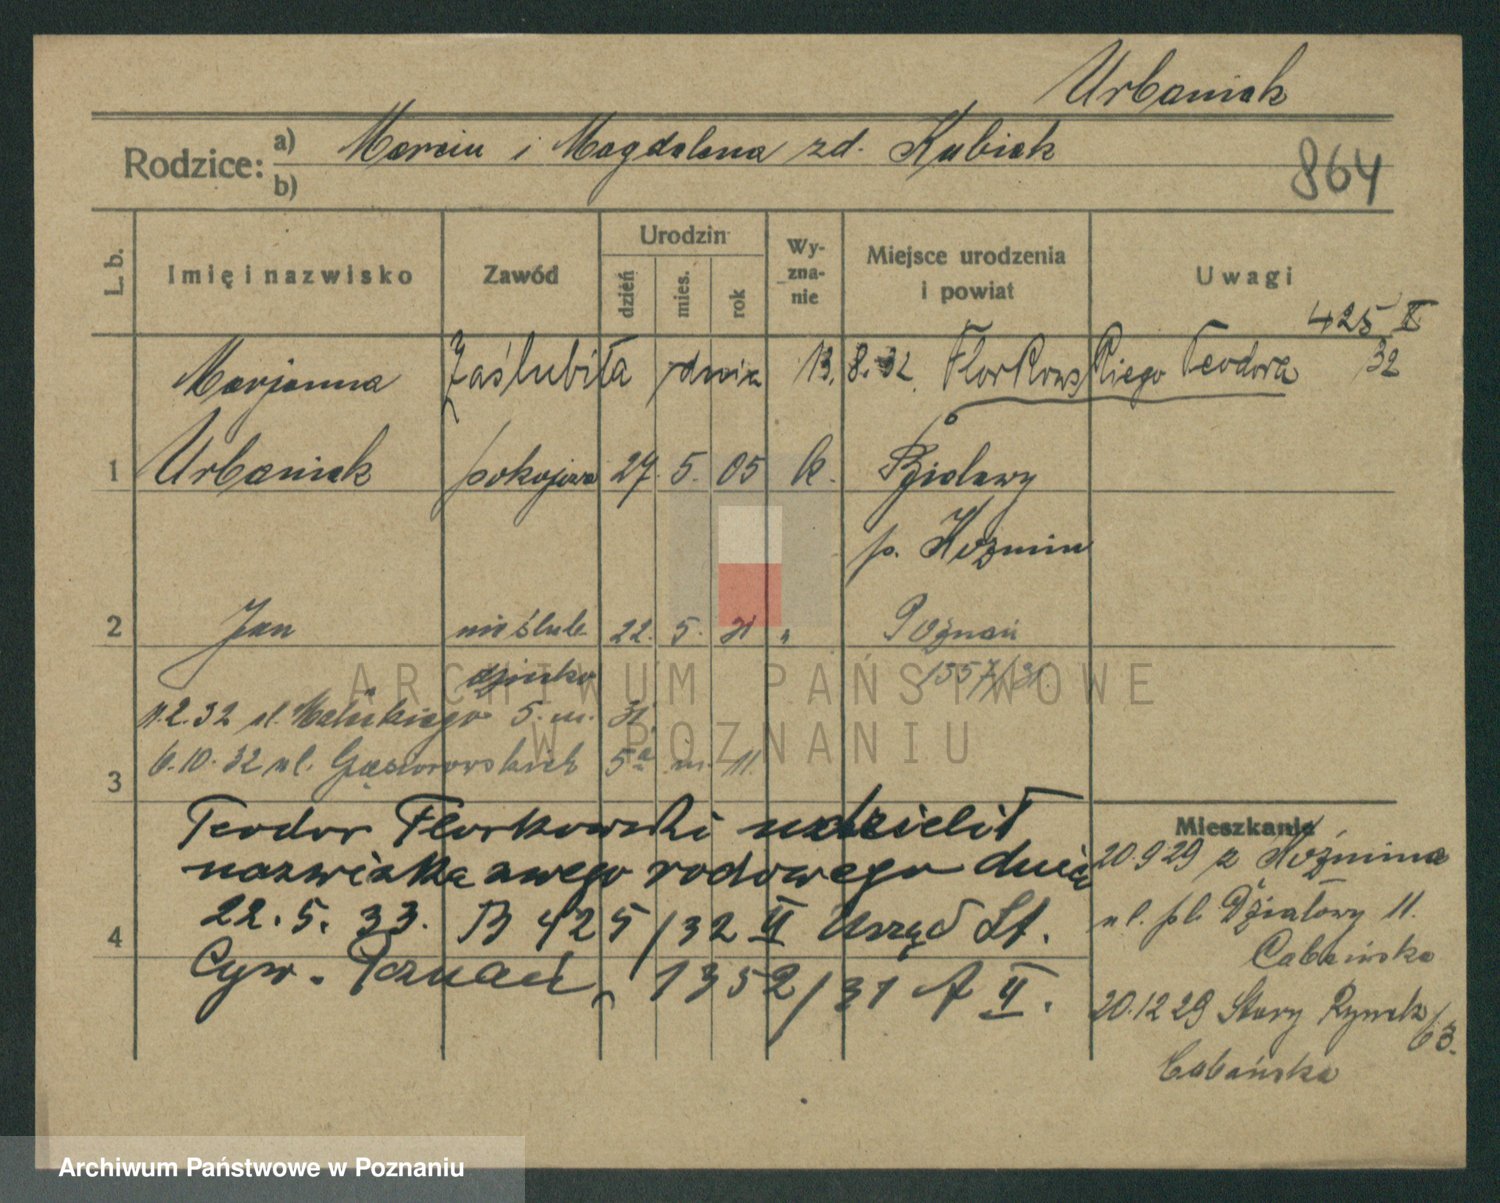 Urbaniak
Rodzice: a) Marcin i Magdalena zd. Kubiak
b)
864
L. b.
Imię i nazwisko
Zawód
Urodzin
dzień
mies.
rok
Wy-
zna-
nie
Miejsce urodzenia
i powiat
Uwagi
425 II
32
Marjanna Zaślubiła dnia 13. 8. 32 Florkowskiego Teodora
1 Urbaniak pokojowa 27. 5. 05 k. Działawy
p. Kozmin
2 Jan nieślub. 22. 5. 31 " Poznań
dziecko 1357/31
11.2.32 ul. Małeckiego 5. m. 31
6.10.32 ul. Gąsiorowskich 5a m. 11.
3
Teodor Florkowski udzielił
nazwiska swego rodowego dnia
22. 5. 33. B 425/32 II Urząd St.
4
Cyw. Poznań, 1352/31 A II.
Mieszkanie
20.9 29 z Koźmina
ul. pl. Działowy 11.
Cabańska
20.12 29 Stary Rynek 63.
Cabańska
ARCHIWUM PAŃSTWOWE
W POZNANIU
Archiwum Państwowe w Poznaniu